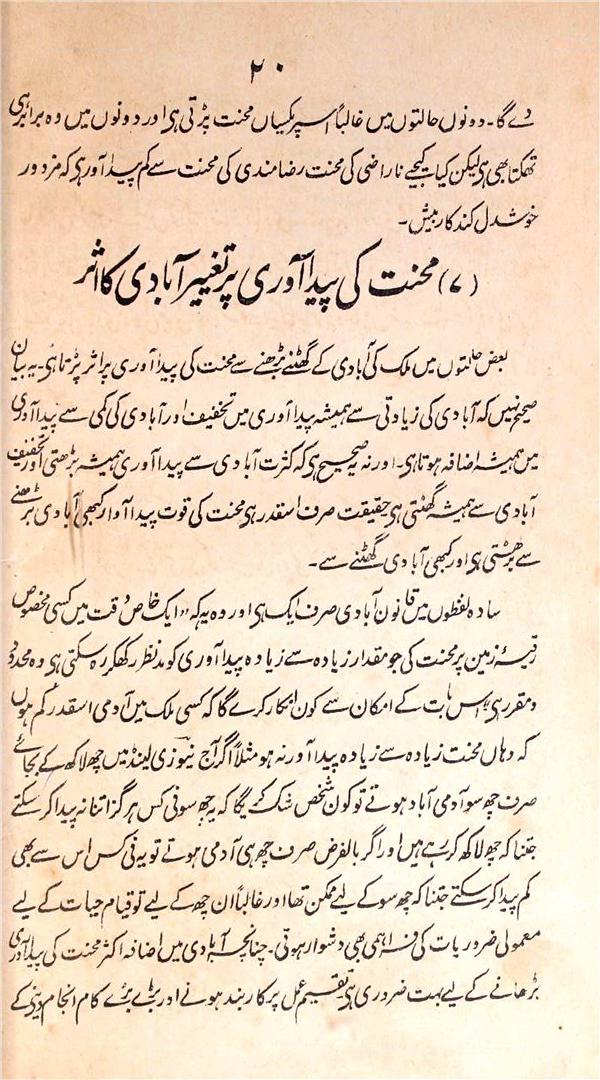 ۲۰
دے گا۔ دونوں حالتوں میں غالباً اسپر یکساں محنت پڑتی ہی اور دونوں میں وہ برابر ہی
تھکتا بھی ہی لیکن کیا کیجیے ناراضی کی محنت رضامندی کی محنت سے کم پیدا آور ہی کہ مزدور
خوشدل کند کار بیش۔
(۷) محنت کی پیدا آوری پر تغییر آبادی کا اثر
بعض حالتوں میں ملک کی آبادی کے گھٹنے بڑھنے سے محنت کی پیدا آوری پر اثر پڑتا ہی۔ یہ بیان
صحیح نہیں کہ آبادی کی زیادتی سے ہمیشہ پیدا آوری میں تخفیف اور آبادی کی کمی سے پیدا آوری
میں ہمیشہ اضافہ ہوتا ہی۔ اور نہ یہ صحیح ہی کہ کثرت آبادی سے پیدا آوری ہمیشہ بڑھتی اور تخفیف
آبادی سے ہمیشہ گھٹتی ہی حقیقت صرف اسقدر ہی محنت کی قوت پیدا آوار کبھی آبادی بڑھنے
سے بڑھتی ہی اور کبھی آبادی گھٹنے سے۔
سادہ لفظوں میں قانون آبادی صرف ایک ہی اور وہ یہ کہ ”ایک خاص وقت میں کسی مخصوص
رقبۂ زمین پر محنت کی جو مقدار زیادہ سے زیادہ پیدا آوری کو مدنظر رکھکر رہ سکتی ہی وہ محدود
و مقرر ہی“ اس بات کے امکان سے کون انکار کرے گا کہ کسی ملک میں آدمی اسقدر کم ہوں
کہ وہاں محنت زیادہ سے زیادہ پیدا آور نہ ہو مثلاً اگر آج نیوزی لینڈ میں چھ لاکھ کے بجائے
صرف چھ سو آدمی آباد ہوتے تو کون شخص شک کرے گا کہ یہ چھ سو فی کس ہرگز اتنا نہ پیدا کر سکتے
جتنا کہ چھ لاکھ کر رہے ہیں اور اگر بالفرض صرف چھ ہی آدمی ہوتے تو یہ فی کس اس سے بھی
کم پیدا کر سکتے جتنا کہ چھ سو کے لیے ممکن تھا اور غالباً ان چھ کے لیے تو قیام حیات کے لیے
معمولی ضروریات کی فراہمی بھی دشوار ہوتی۔ چنانچہ آبادی میں اضافہ اکثر محنت کی پیدا آوری
بڑھانے کے لیے بہت ضروری ہی تقسیم عمل پر کاربند ہونے اور بڑے بڑے کام انجام دینے کے